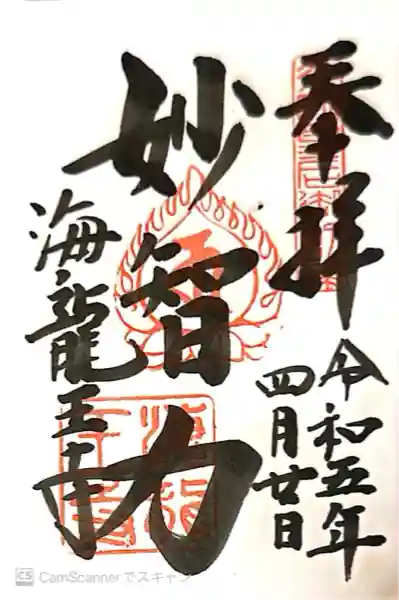 奉拝
令和五年
四月廿日
妙智力
海龍王寺
CS CamScannerでスキャン